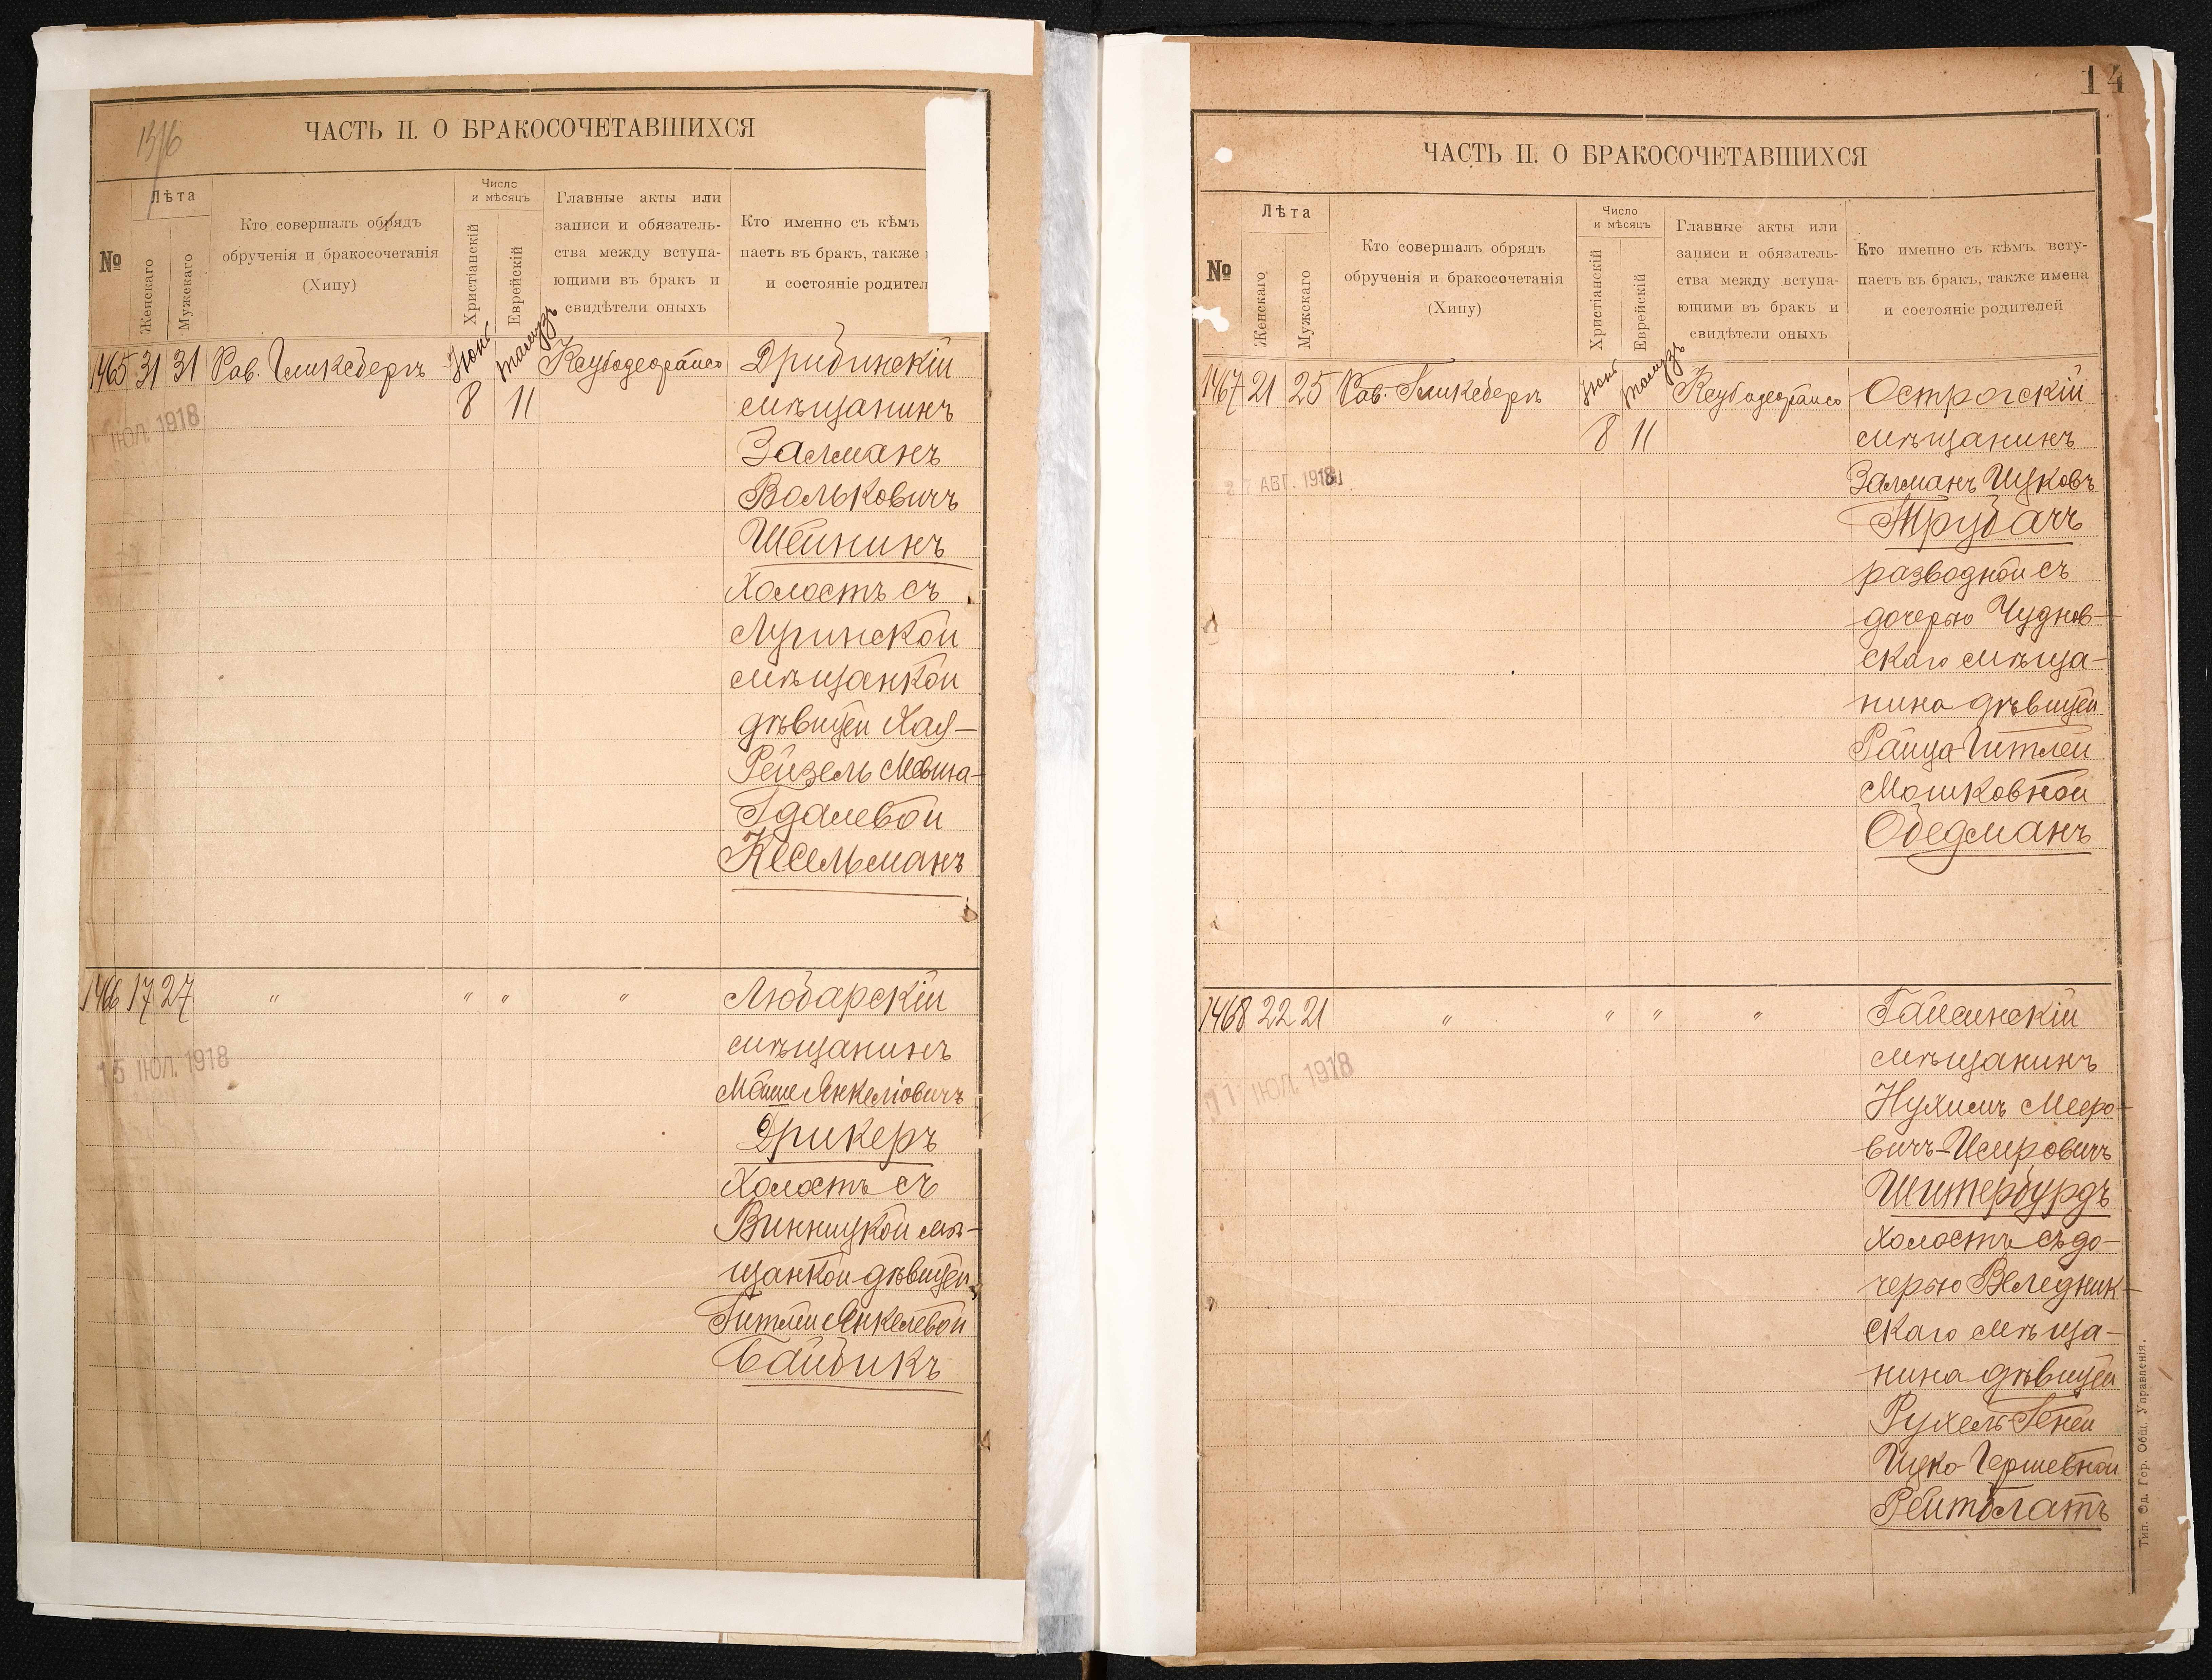 ЧАСТЬ II. О БРАКОСОЧЕТАВШИХСЯ
№
Лѣта
Женскаго
Мужскаго
Кто совершалъ обрядъ
обрученія и бракосочетанія
(Хипу)
Число
и мѣсяцъ
Христіанскій
Еврейскій
Главные акты или
записи и обязатель-
ства между вступа-
ющими въ бракъ и
свидѣтели оныхъ
Кто именно съ кѣмъ
паетъ въ брак, также
и состояніе родител
1465 31 31
8 11
Дрибинскій
мѣщанинъ
Залманъ
Вольковичъ
Шейнинъ
холостъ съ
Лугинской
мѣщанкой
дѣвицей Хая-
Рейзель Мовша-
Гдалевой
Кесельманъ
ІЮЛ. 1918
1466 17 27 " " " "
Любарскій
мѣщанинъ
Мойше Янкеліовичъ
Дрикеръ
холостъ съ
Винницкой мѣ-
щанкой дѣвицей
Гитлей Янкелевой
Байбикъ
15 ІЮЛ. 1918
14
ЧАСТЬ II. О БРАКОСОЧЕТАВШИХСЯ
№
Лѣта
Женскаго
Мужскаго
Кто совершалъ обрядъ
обрученія и бракосочетанія
(Хипу)
Число
и мѣсяцъ
Христіанскій
Еврейскій
Главные акты или
записи и обязатель-
ства между вступа-
ющими въ бракъ и
свидѣтели оныхъ
Кто именно съ кѣмъ всту-
паетъ въ брак, также имена
и состояніе родителей
1467 21 25
8 11
Острогскій
мѣщанинъ
Залманъ Ицковъ
Трубачъ
разводной съ
дочерью Чуднов-
скаго мѣща-
нина дѣвицей
Райца-Гитлей
Мошковной
Обедманъ
27 АВГ. 1918
1468 22 21 " " " "
Гайсинскій
мѣщанинъ
Нухимъ Мееро-
вичъ-Исеровичъ
Штербурдъ
холостъ съ до-
черью Веледник-
скаго мѣща-
нина дѣвицей
Рухель-Геней
Ицко-Гершевной
Рейтблатъ
11 ІЮЛ. 1918
Тип. Од. Гор. Общ. Управленія.